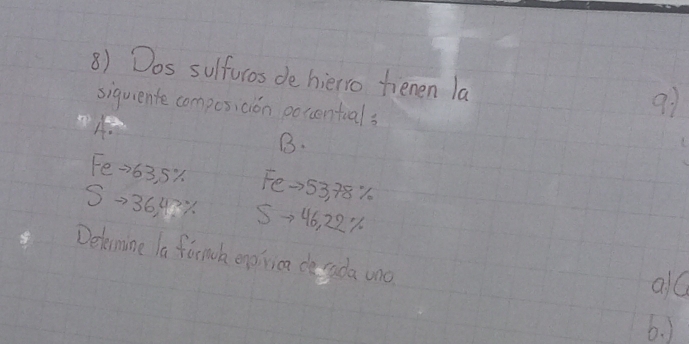 8) Dos sulfuros de hierro tienen la
siguiente composición porcentual:
A.
B.
Fe → 63,5%
Fe → 53,78%
S → 36,4%
S → 46,22%
Determine la fórmula empírica de cada uno.
9)
a)
b.)